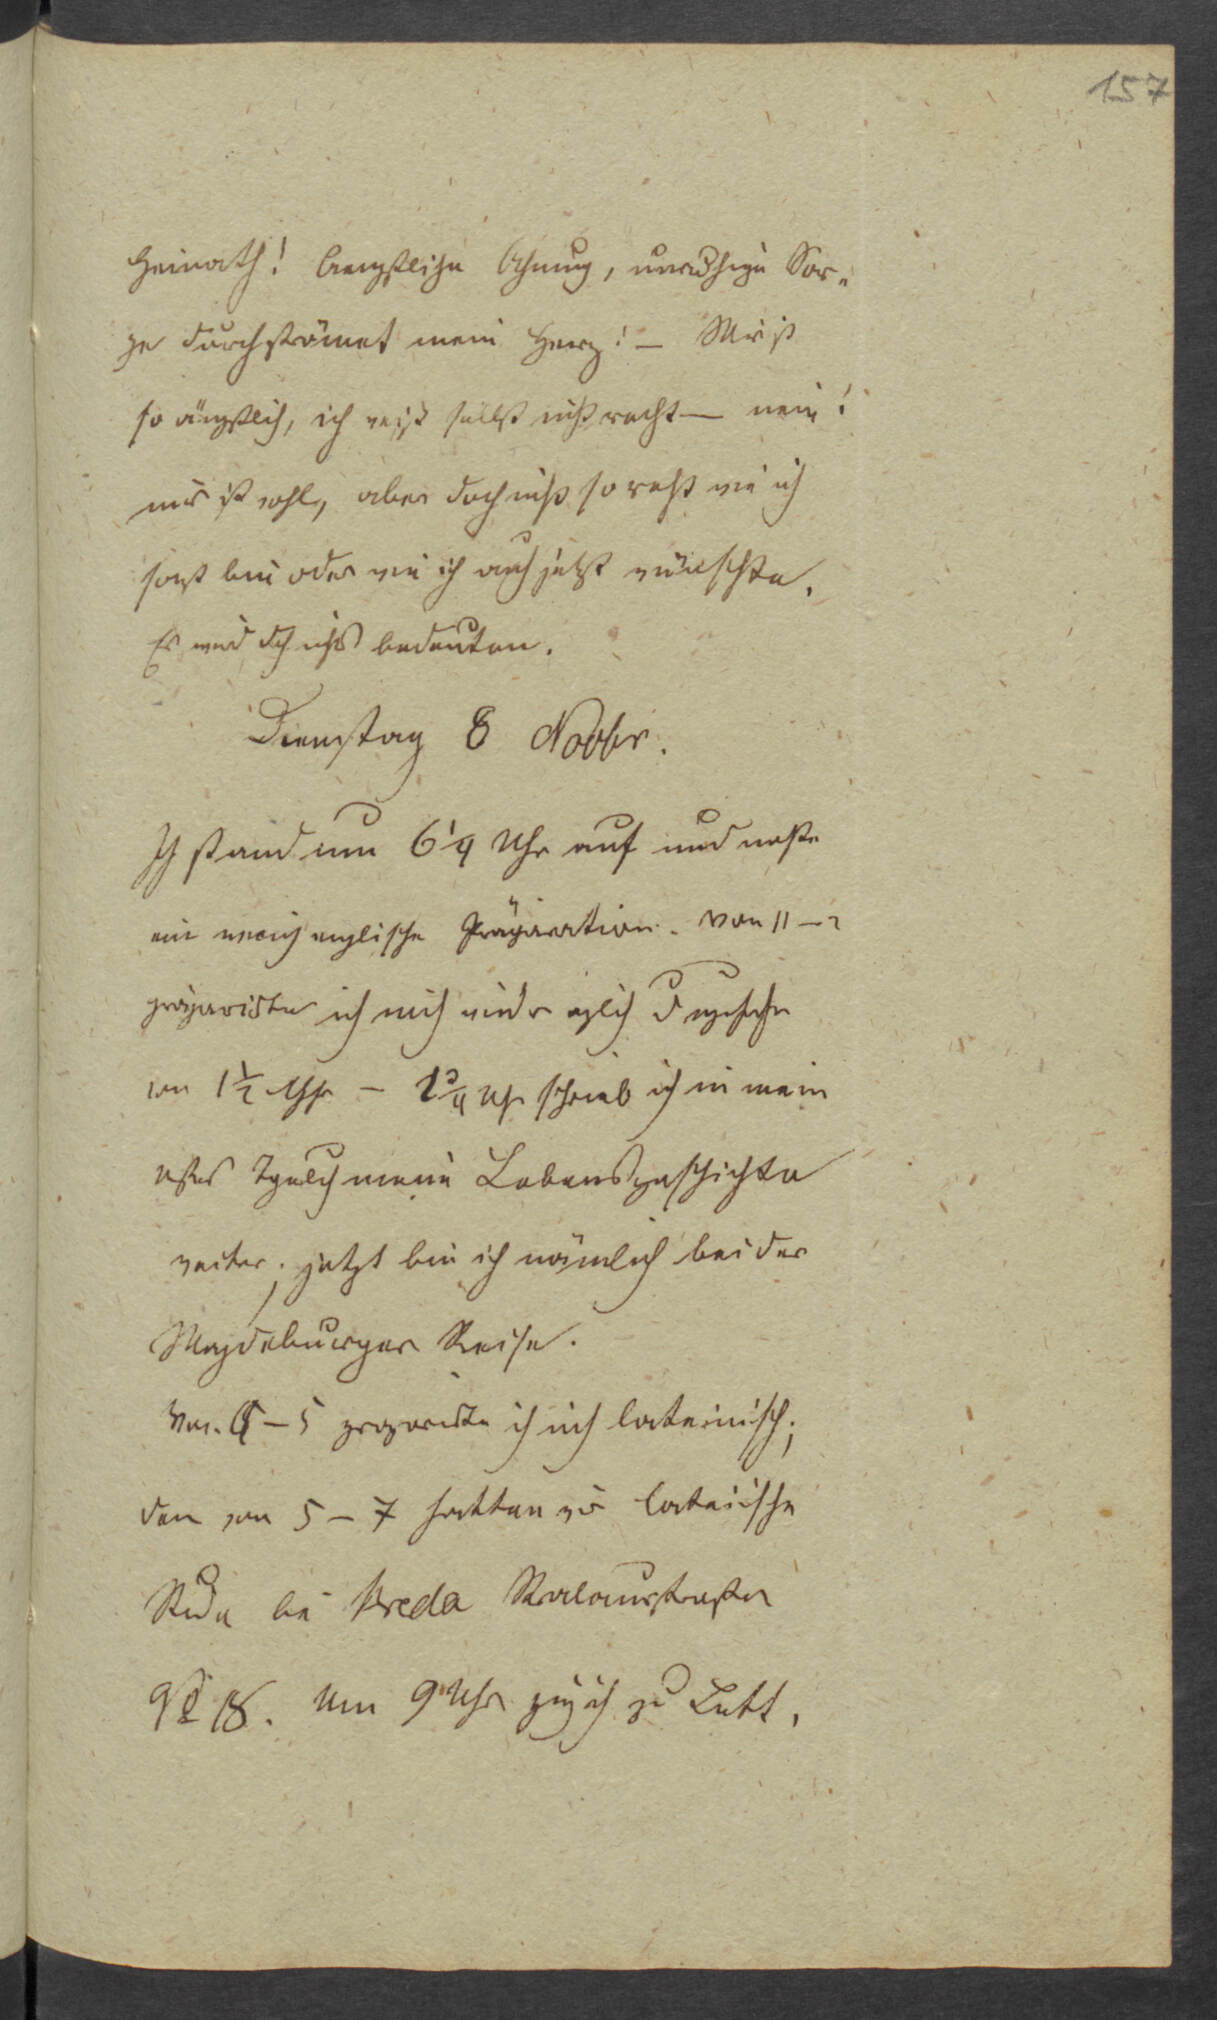 157
Heimath! Aengstliche Ahnung, unruhige Sor-
ge durchströmet mein Herz! — Mir ist
so ängstlich, ich weiß selbst nicht recht — nein!
mir ist wohl, aber doch nicht so recht wie ich
sonst bin oder wie ich auch jetzt wünschte.
Es wird doch nichts bedeuten.
Dienstag 8 Novbr.
Ich stand um 6 1/4 Uhr auf und machte
ein wenig englische Präparation. Von 11 –
präparirte ich mich wieder
von 1 1/2 Uhr – 1 3/4 Uhr schrieb ich in mein
meine Lebensgeschichte
weiter; jetzt bin ich nämlich bei der
Magdeburger Reise.
Von 4 – 5 preparirte ich mich lateinisch;
den von 5 – 7 hatten wir lateinische
Stunde bei Breda Stralauerstraße
N 18. Um 9 Uhr ging ich zu Bett.